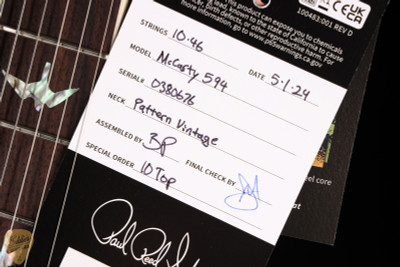 100483:001 REV D
CE UK CA
this product can expose you to chemicals
lead
known to the State of California to cause
birth defects, or other reproductive harm. For
more information, go to www.p65warnings.ca.gov
STRINGS 10-46
MODEL McCarty 594 DATE 5-1-24
SERIAL# 0380676
NECK Pattern Vintage
ASSEMBLED BY BP FINAL CHECK BY
SPECIAL ORDER 10 Top
Paul Reed
eel core